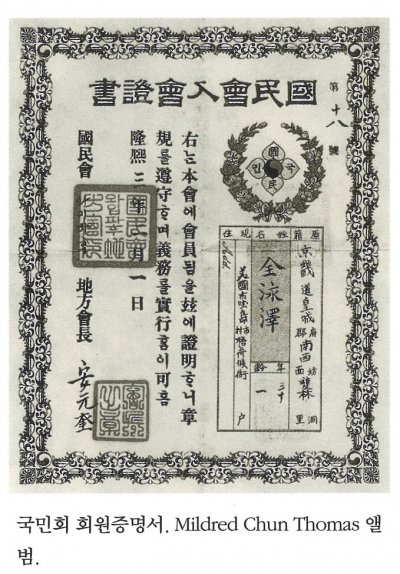 國民會入會證書
第十八號
原籍
姓名
現住
京畿道皇城府郡南西坊面雙林洞里
全泳澤
年齡 三十一
美國
右는本會에會員됨을玆에證明ᄒᆞ니章
規를遵守ᄒᆞ며義務를實行홈이可홈
隆熙三年二月一日
國民會 地方會長 安元奎
국민회 회원증명서. Mildred Chun Thomas 앨
범.